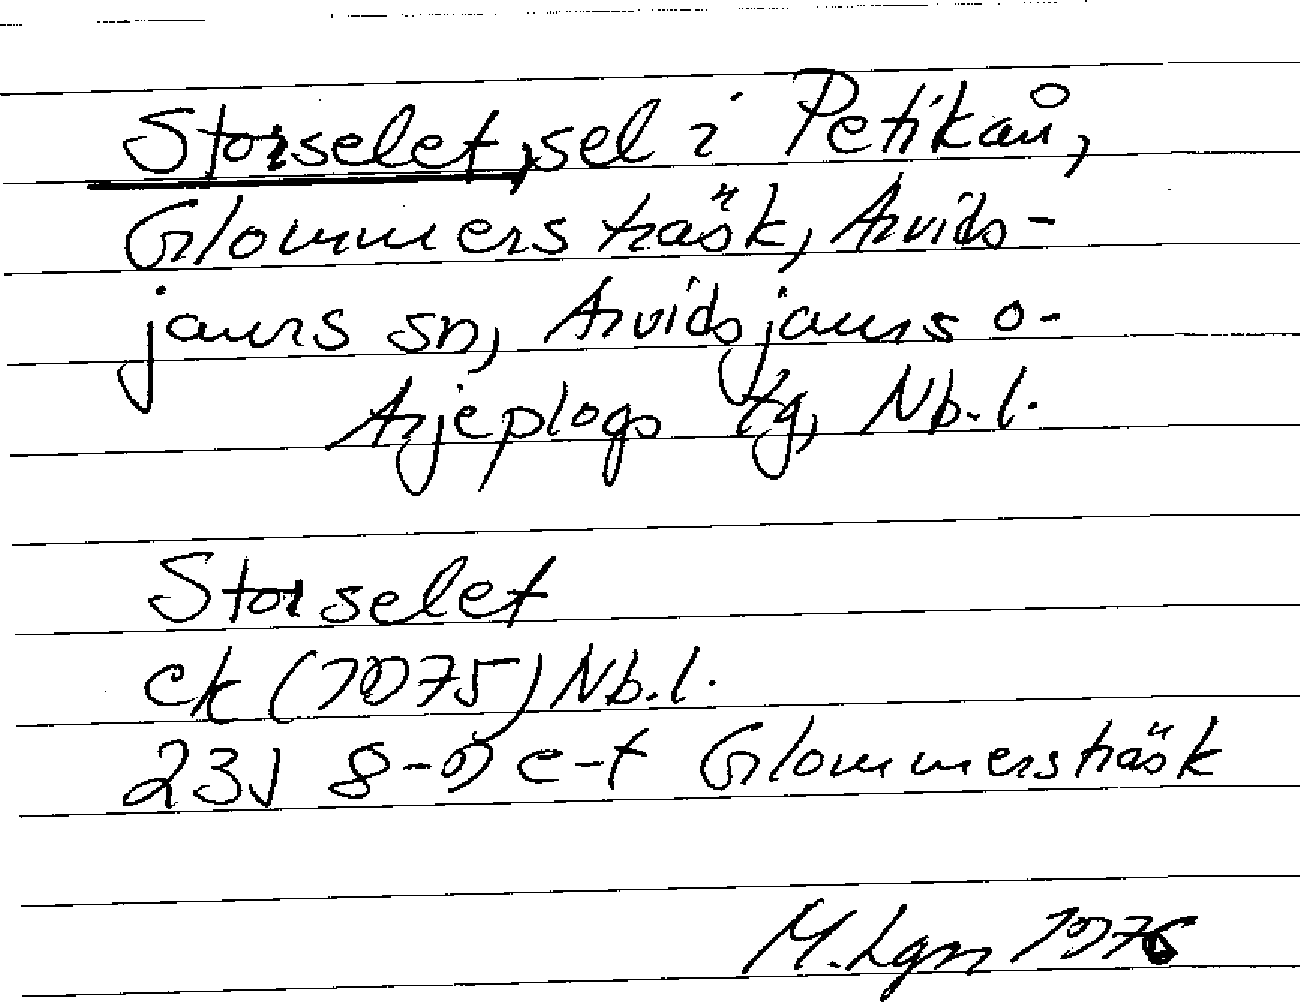 Storselet, sel i Petikån,
Glommersträsk, Arvids-
jaurs sn, Arvidsjaurs o-
Arjeplogs tg, Nb.l.
Storselet
ek (1975) Nb.l.
23J 8-9 e-f Glommersträsk
M. Lgm 1976